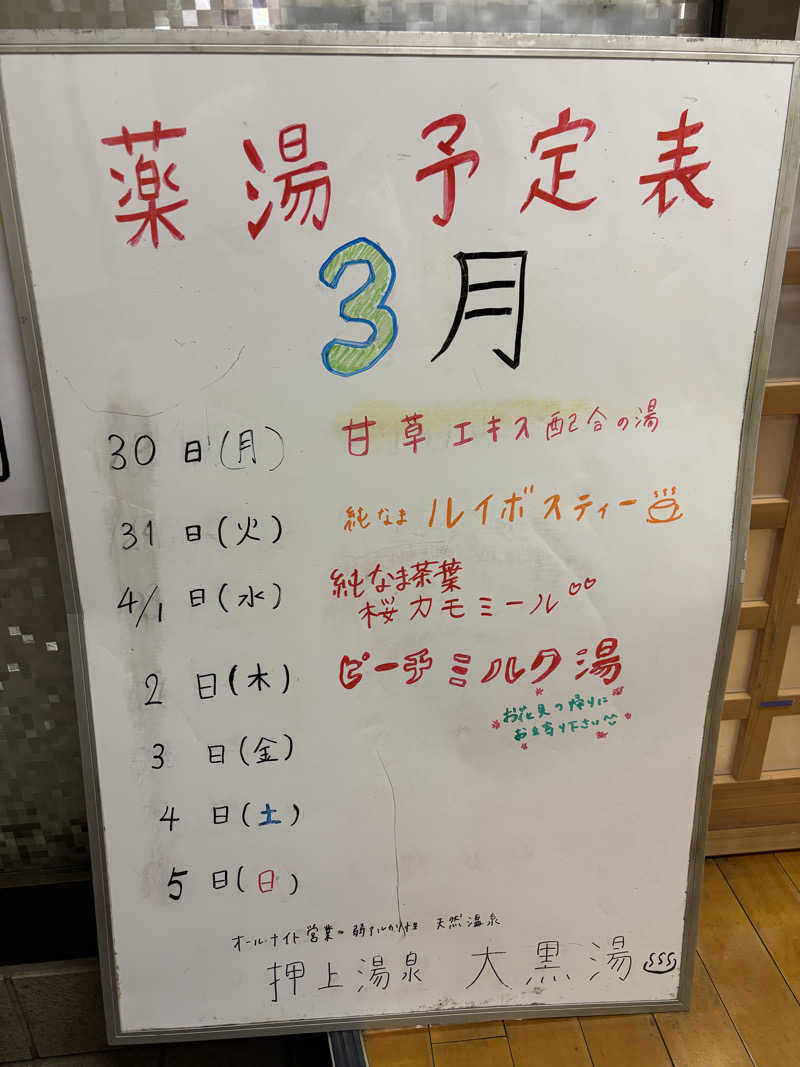 薬湯予定表
3月
30日(月) 甘草エキス配合の湯
31日(火) 純なまルイボスティー
4/1日(水) 純なま茶葉
桜カモミール
2日(木) ピーチミルク湯
お花見の帰りに
お立寄り下さい
3日(金)
4日(土)
5日(日)
オールナイト営業 弱アルカリ性 天然温泉
押上温泉 大黒湯